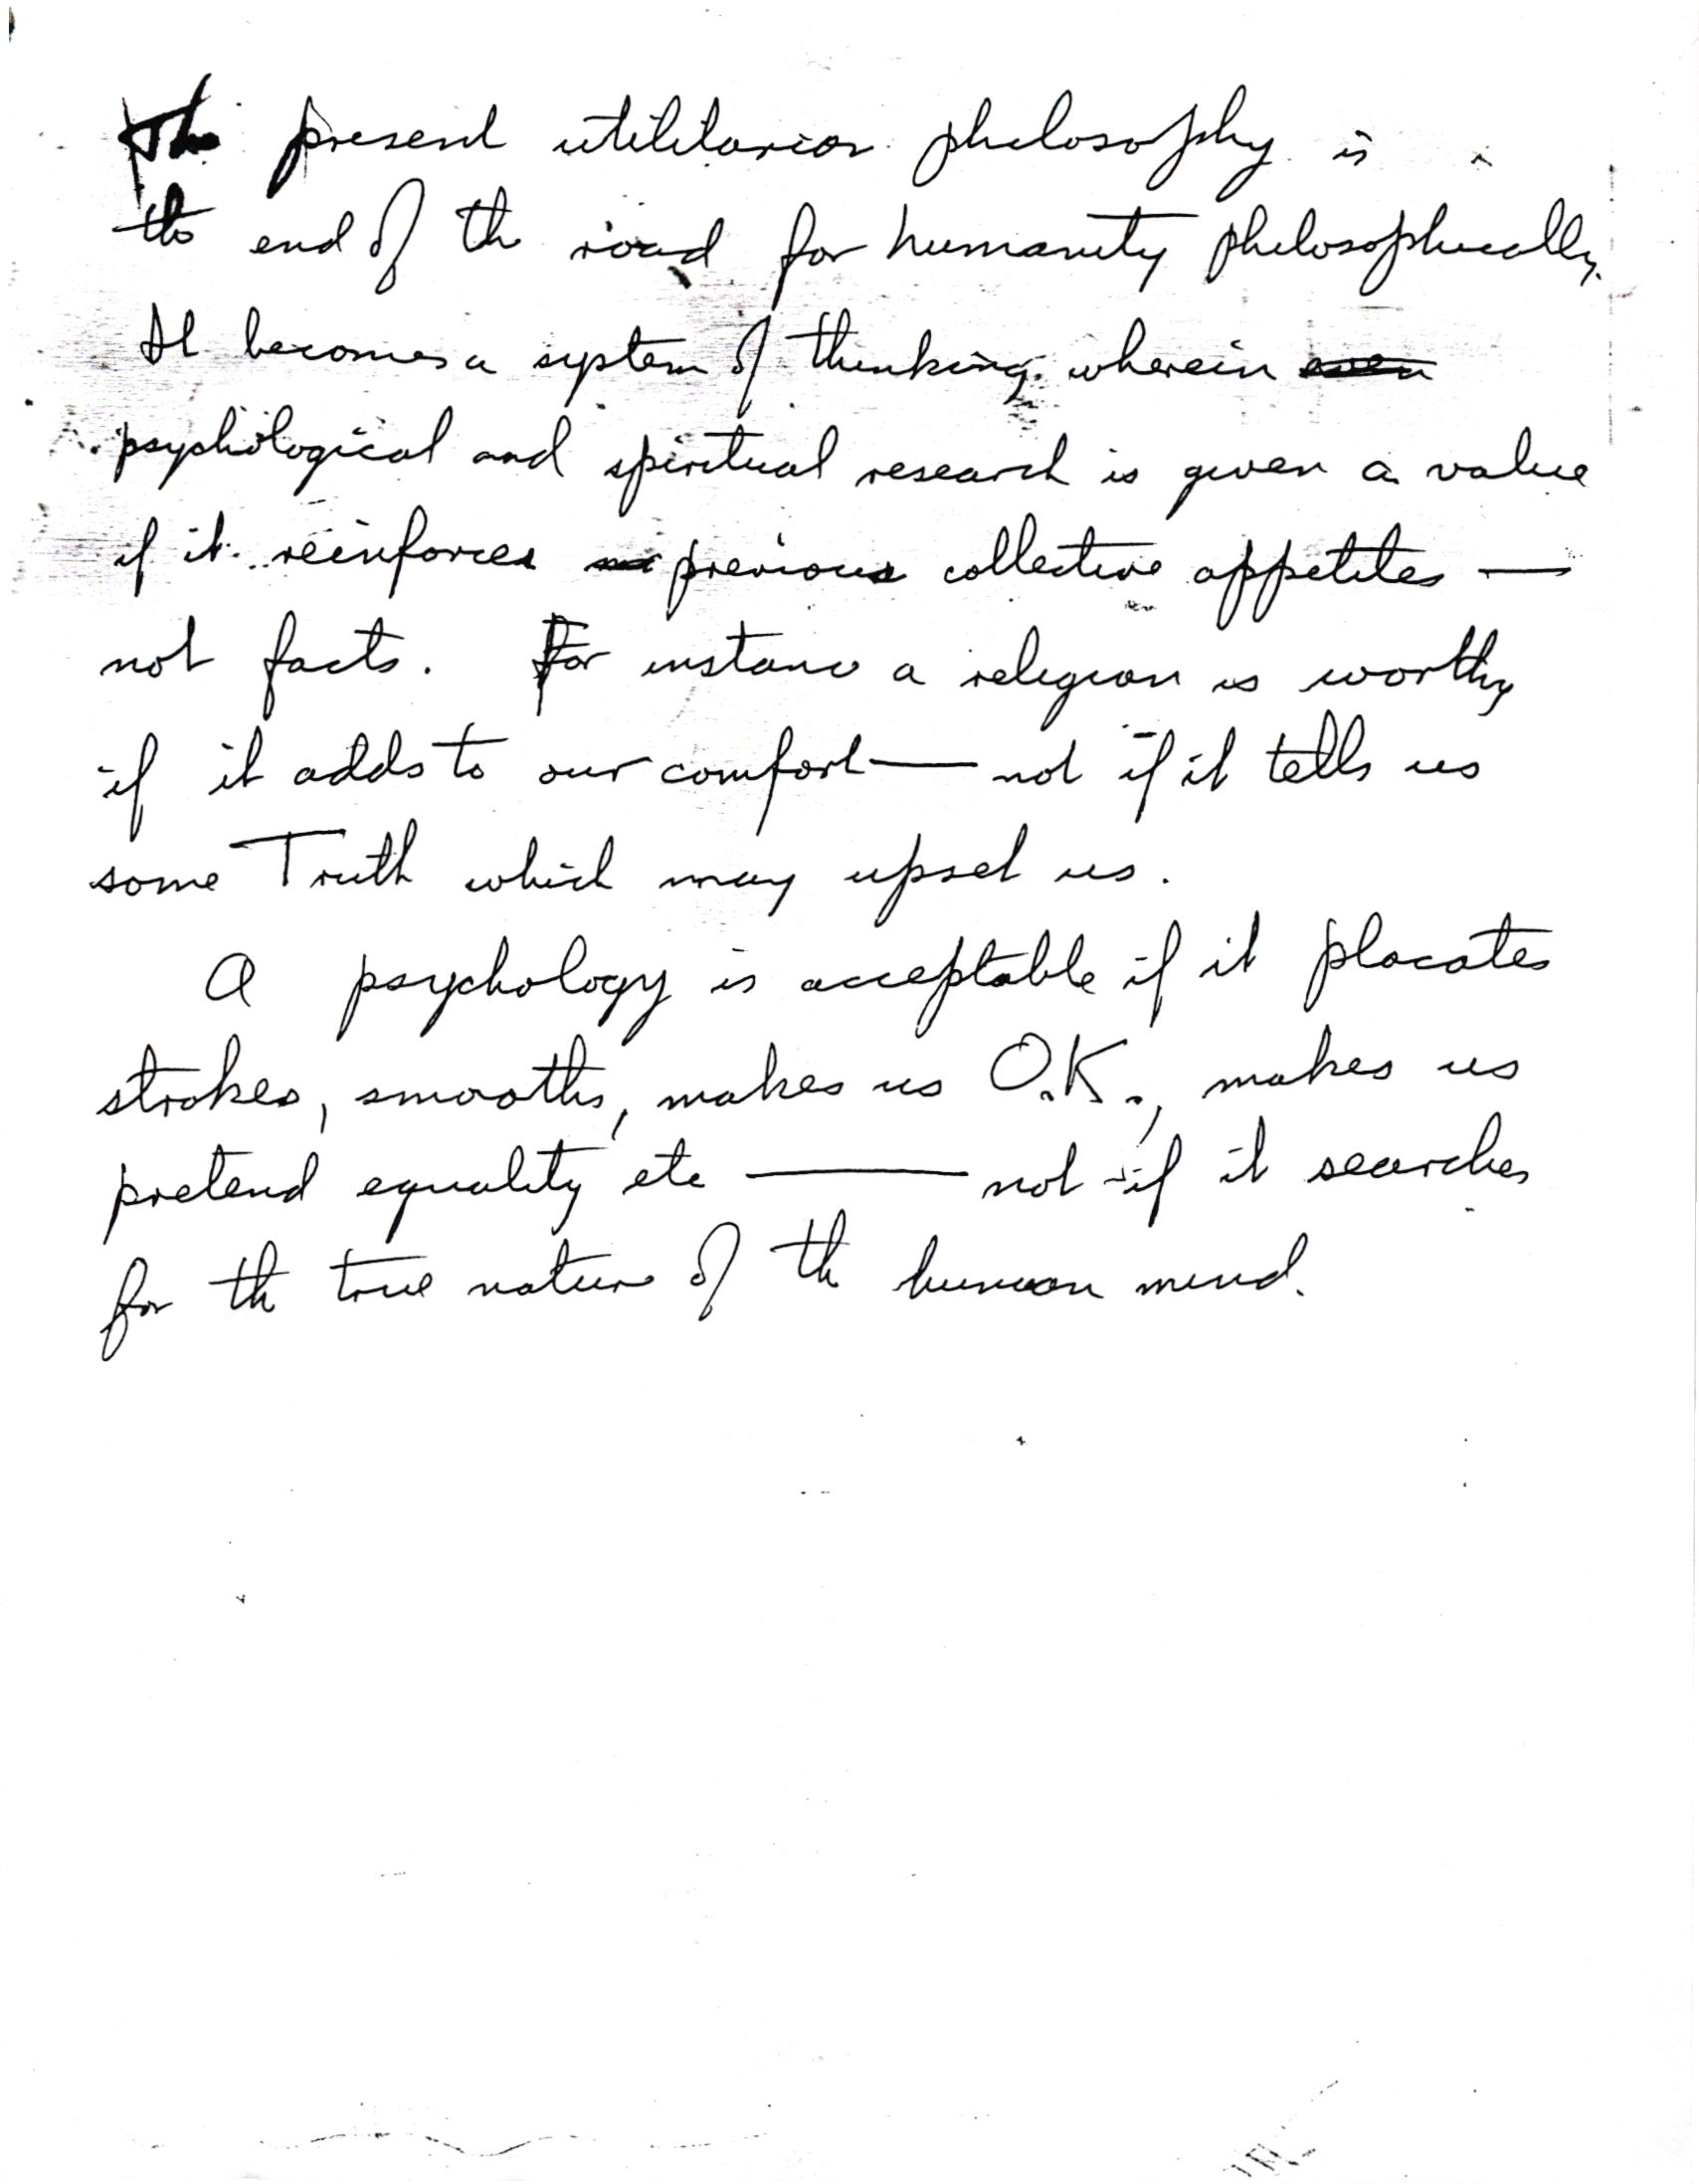 The present utilitarian philosophy is
the end of the road for humanity philosophically.
It becomes a system of thinking wherein even
psychological and spiritual research is given a value
if it reinforces previous collective appetites —
not facts. For instance a religion is worthy
if it adds to our comfort — not if it tells us
some Truth which may upset us.
A psychology is acceptable if it placates
strokes, smooths, makes us O.K., makes us
pretend equality etc — not if it searches
for the true nature of the human mind.